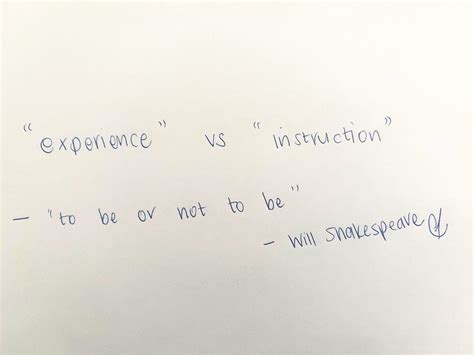 "experience" vs "instruction"
– "to be or not to be"
– Will Shakespeare